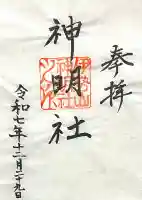 奉拝
神明社
令和七年十二月二十九日